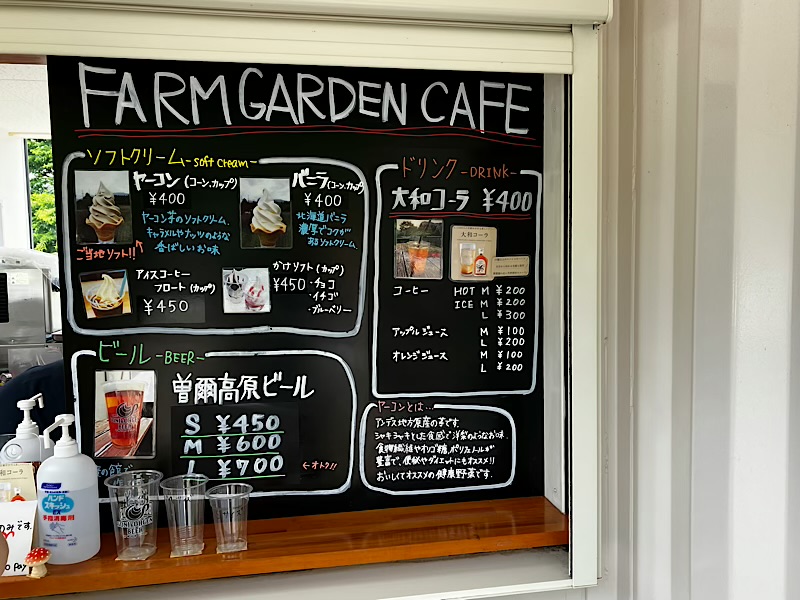 FARM GARDEN CAFE
ソフトクリーム -soft cream-
ヤーコン(コーン、カップ)
¥400
ヤーコン芋のソフトクリーム。
キャラメルやナッツのような
香ばしいお味
ご当地ソフト!!
バニラ(コーン、カップ)
¥400
北海道バニラ
濃厚でコクが
あるソフトクリーム。
アイスコーヒー
フロート(カップ)
¥450
かけソフト(カップ)
¥450 ・チョコ
・イチゴ
・ブルーベリー
ビール -BEER-
曽爾高原ビール
S ¥450
M ¥600
L ¥700
←オトク!!
ドリンク -DRINK-
大和コーラ ¥400
大和コーラ
コーヒー HOT M ¥200
ICE M ¥200
L ¥300
アップルジュース M ¥100
L ¥200
オレンジジュース M ¥100
L ¥200
ヤーコンとは…
アンデス地方原産の芋です。
シャキシャキとした食感で洋梨のようなお味。
食物繊維やオリゴ糖、ポリフェノールが
豊富で、便秘やダイエットにもオススメ!!
おいしくてオススメの健康野菜です。
ハンド
スキッシュ
EX
手指消毒剤
のみです。
Pay